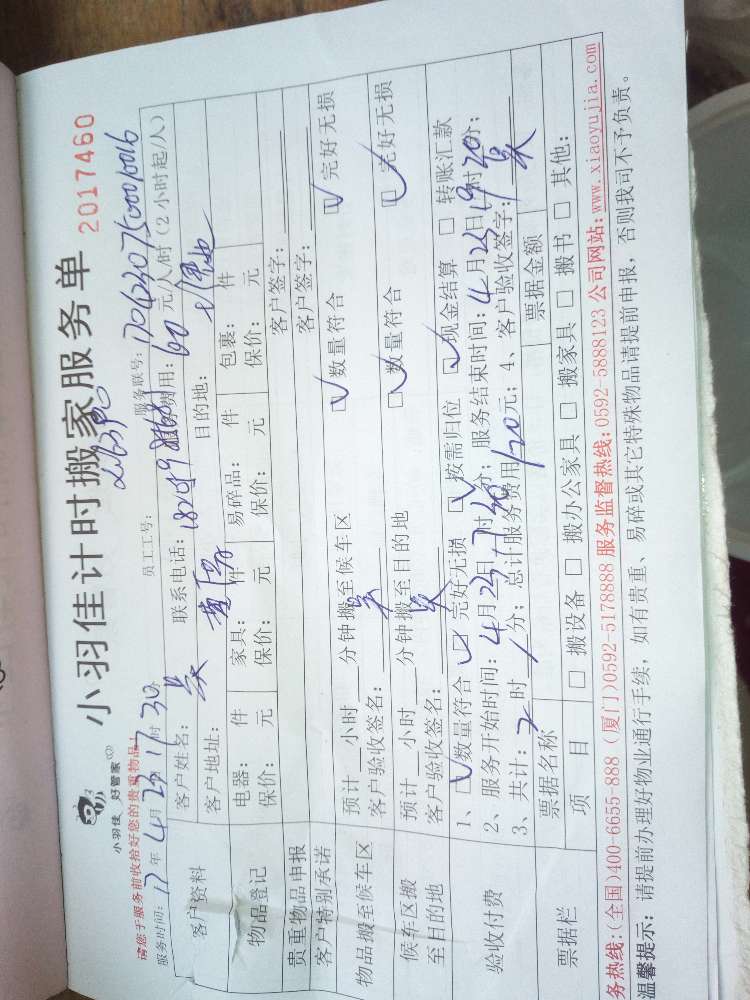 小羽佳 好管家
小羽佳计时搬家服务单 2017460
请您于服务前收拾好您的贵重物品!
服务时间: 17年4月23日17时30分 员工工号: 服务联号:
客户资料 客户姓名: 吴 联系电话: 服务费用: 60元/人/时(2小时起/人)
客户地址: 目的地:
物品登记 电器: 件 家具: 件 易碎品: 件 包裹: 件
保价: 元 保价: 元 保价: 元 保价: 元
贵重物品申报 客户签字:
客户特别承诺 客户签字:
物品搬至候车区 预计 小时 分钟搬至候车区 数量符合 完好无损
客户验收签名: 吴
候车区搬至目的地 预计 小时 分钟搬至目的地 数量符合 完好无损
客户验收签名: 吴
验收付费 1、 数量符合 完好无损 按需归位 现金结算 转账汇款
2、服务开始时间: 4月23日17时30分; 服务结束时间: 4月23日19时20分;
3、共计: 2时 分; 总计服务费用120元; 4、客户验收签字: 吴
票据栏 票据名称 票据金额
项目 搬设备 搬办公家具 搬家具 搬书 其他:
务热线:(全国)400-6655-888 (厦门)0592-5178888 服务监督热线:0592-5888123 公司网站:www.xiaoyujia.com
温馨提示: 请提前办理好物业通行手续, 如有贵重、易碎或其它特殊物品请提前申报, 否则我司不予负责。